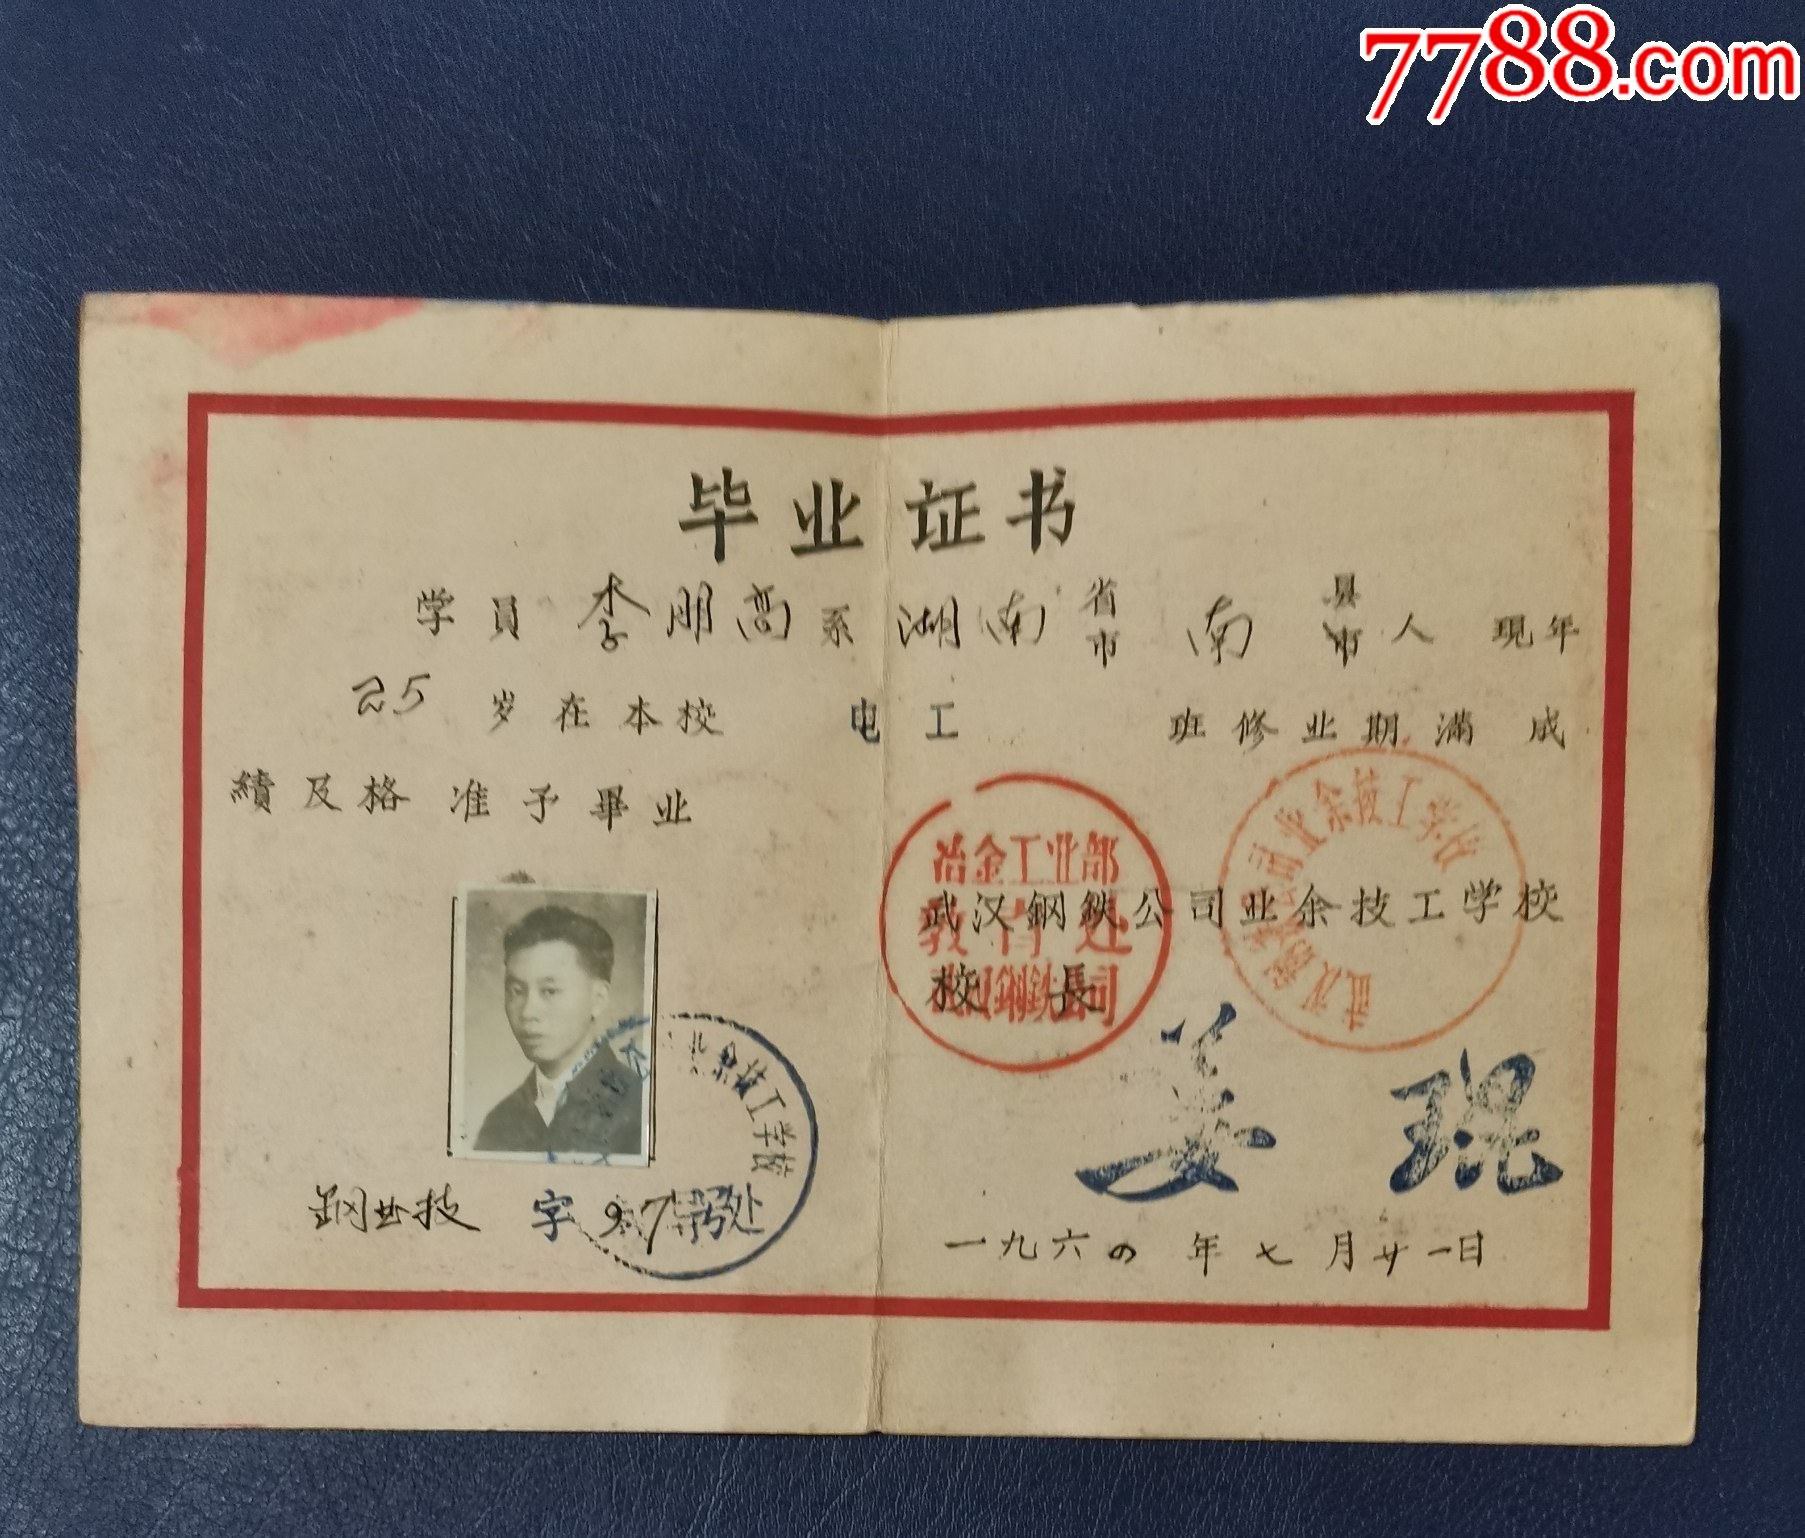 7788.com
毕业证书
学員 李朋高 系 湖南 省市 南 县市 人 现年
25 岁在本校 电工 班修业期滿 成
績及格 准予畢业
冶金工业部
教育处
武汉鋼鉄公司
武汉鋼鉄公司业余技工学校
校長
姜琨
业余技工学校
钢业技 字 97 号
一九六四年七月廿一日